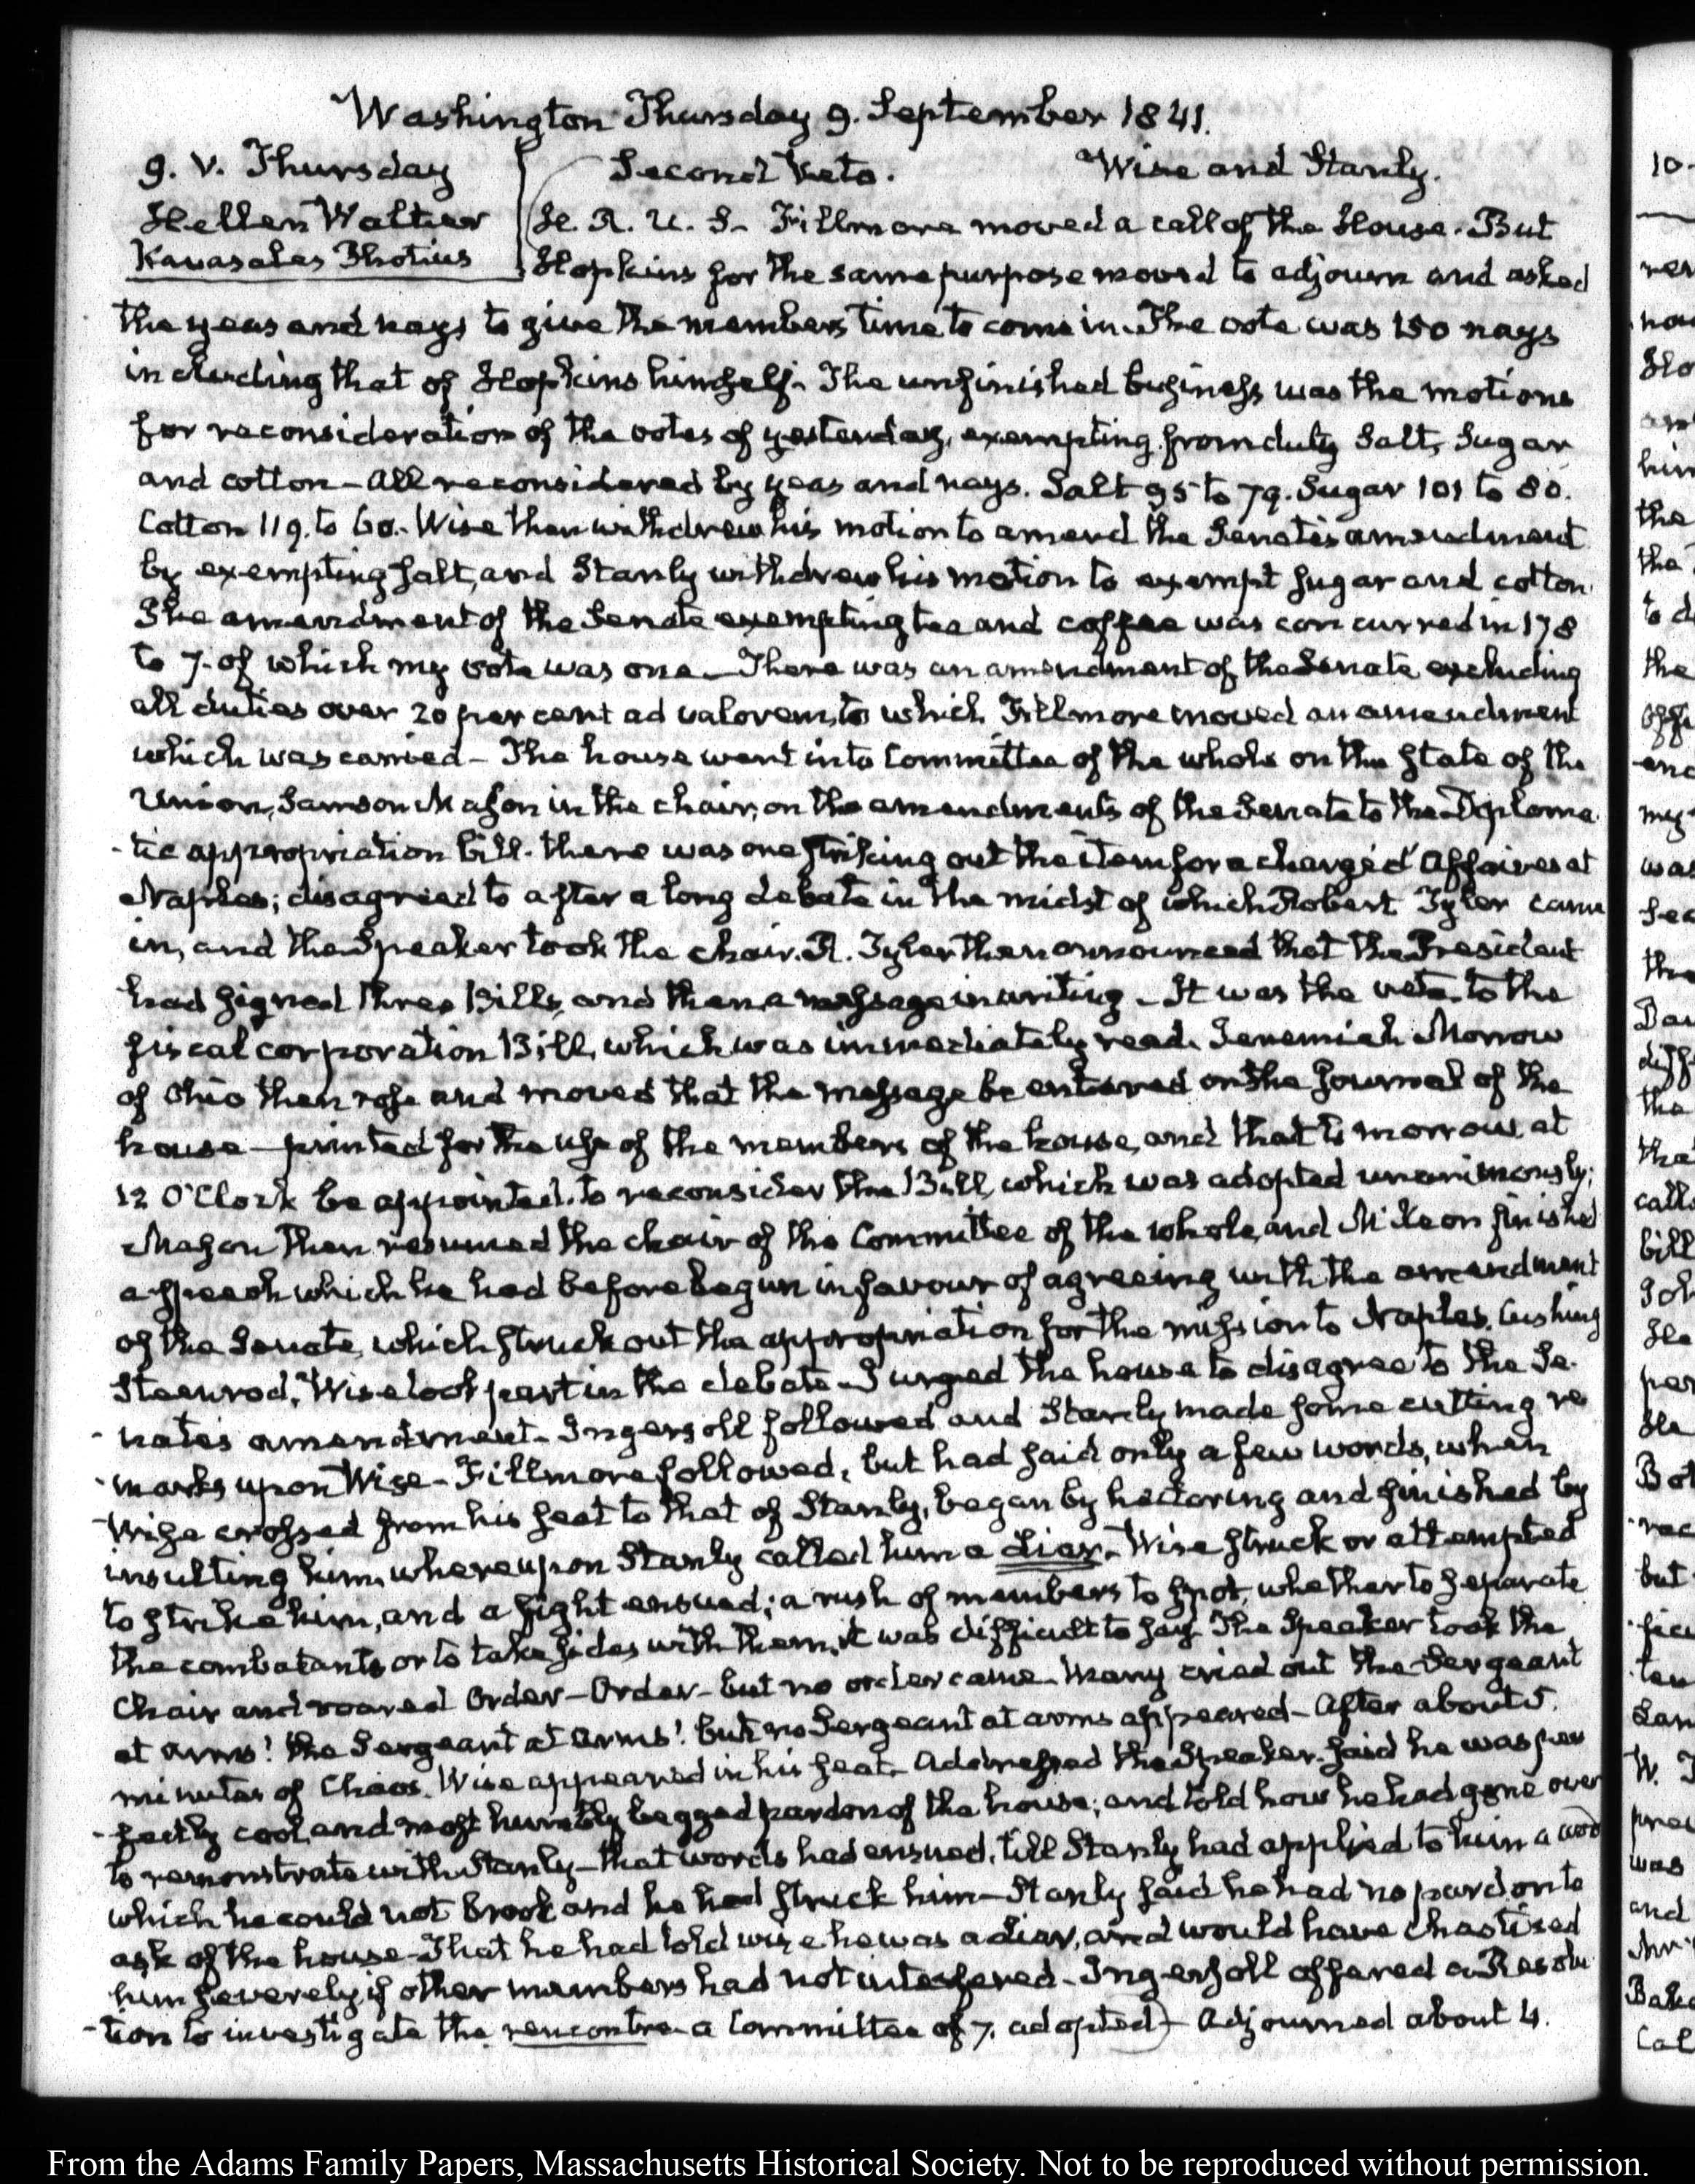 Washington Thursday 9. September 1841.
9. V. Thursday
Hellen Walter
Kavasales Photius
Second Veto. Wise and Stanly.
H. R. U. S. Fillmore moved a call of the House. But
Hopkins for the same purpose moved to adjourn and asked
the yeas and nays to give the members time to come in. The vote was 150 nays
including that of Hopkins himself. The unfinished business was the motions
for reconsideration of the votes of yesterday, exempting from duty Salt, Sugar
and cotton — all reconsidered by yeas and nays. Salt 95 to 79. Sugar 101 to 80.
Cotton 119. to 60. Wise then withdrew his motion to amend the Senate's amendment
by exempting salt, and Stanly withdrew his motion to exempt sugar and cotton.
The amendment of the Senate exempting tea and coffee was concurred in 178
to 7. of which my vote was one — There was an amendment of the Senate excluding
all duties over 20 per cent ad valorem, to which Fillmore moved an amendment
which was carried — The house went into Committee of the whole on the state of the
Union, Samson Mason in the chair, on the amendments of the Senate to the Diploma-
-tic appropriation bill. there was one striking out the item for a chargé d'Affaires at
Naples; disagreed to after a long debate in the midst of which Robert Tyler came
in, and the Speaker took the chair. R. Tyler then announced that the President
had signed three Bills, and then a message in writing — It was the veto to the
fiscal corporation Bill, which was immediately read. Jeremiah Morrow
of Ohio then rose and moved that the message be entered on the Journal of the
house — printed for the use of the members of the house, and that to morrow at
12 O'Clock be appointed to reconsider the Bill, which was adopted unanimously;
Mason then resumed the chair of the Committee of the whole, and McKeon finished
a speech which he had before begun in favour of agreeing with the amendment
of the Senate, which struck out the appropriation for the mission to Naples. Cushing
Steenrod, Wise took part in the debate — I urged the house to disagree to the Se-
-nate's amendment — Ingersoll followed and Stanly made some cutting re
-marks upon Wise — Fillmore followed, but had said only a few words, when
Wise crossed from his seat to that of Stanly, began by hectoring and finished by
insulting him, whereupon Stanly called him a liar. Wise struck or attempted
to strike him, and a fight ensued; a rush of members to spot, whether to separate
the combatants or to take sides with them, it was difficult to say. The Speaker took the
Chair and roared Order — Order — but no order came — Many cried out the Sergeant
at arms! the Sergeant at arms! but no Sergeant at arms appeared — After about 5.
minutes of Chaos, Wise appeared in his seat — Addressed the Speaker. said he was per
-fectly cool, and most humbly begged pardon of the house; and told how he had gone over
to remonstrate with Stanly — that words had ensued, till Stanly had applied to him a word
which he could not brook and he had struck him — Stanly said he had no pardon to
ask of the house — That he had told wise he was a liar, and would have chastised
him severely if other members had not interfered — Ingersoll offered a Resolu
-tion to investigate the rencontre — a Committee of 7. adopted) — Adjourned about 4.
From the Adams Family Papers, Massachusetts Historical Society. Not to be reproduced without permission.